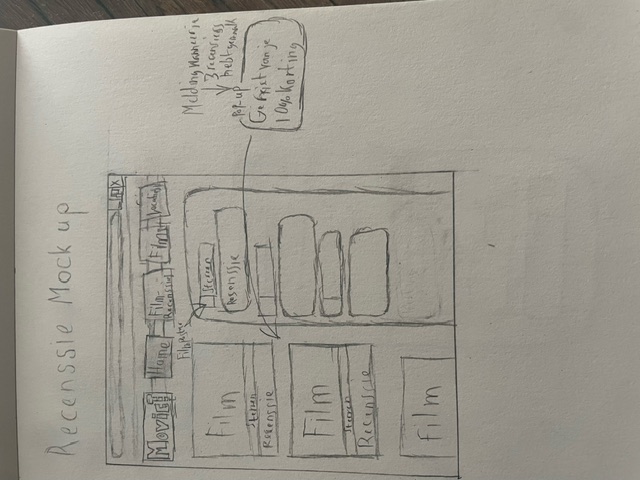 Recenssie Mock up
X
Movie!
Home
Film-
Recenssies
Films
Film
Sterren
Recenssie
Film
Sterren
Recenssie
Film
Sterren
Recenssie
Melding wanneer je
3 recensies
hebt gemaakt
Pop-up
Gefixst van je
10% korting